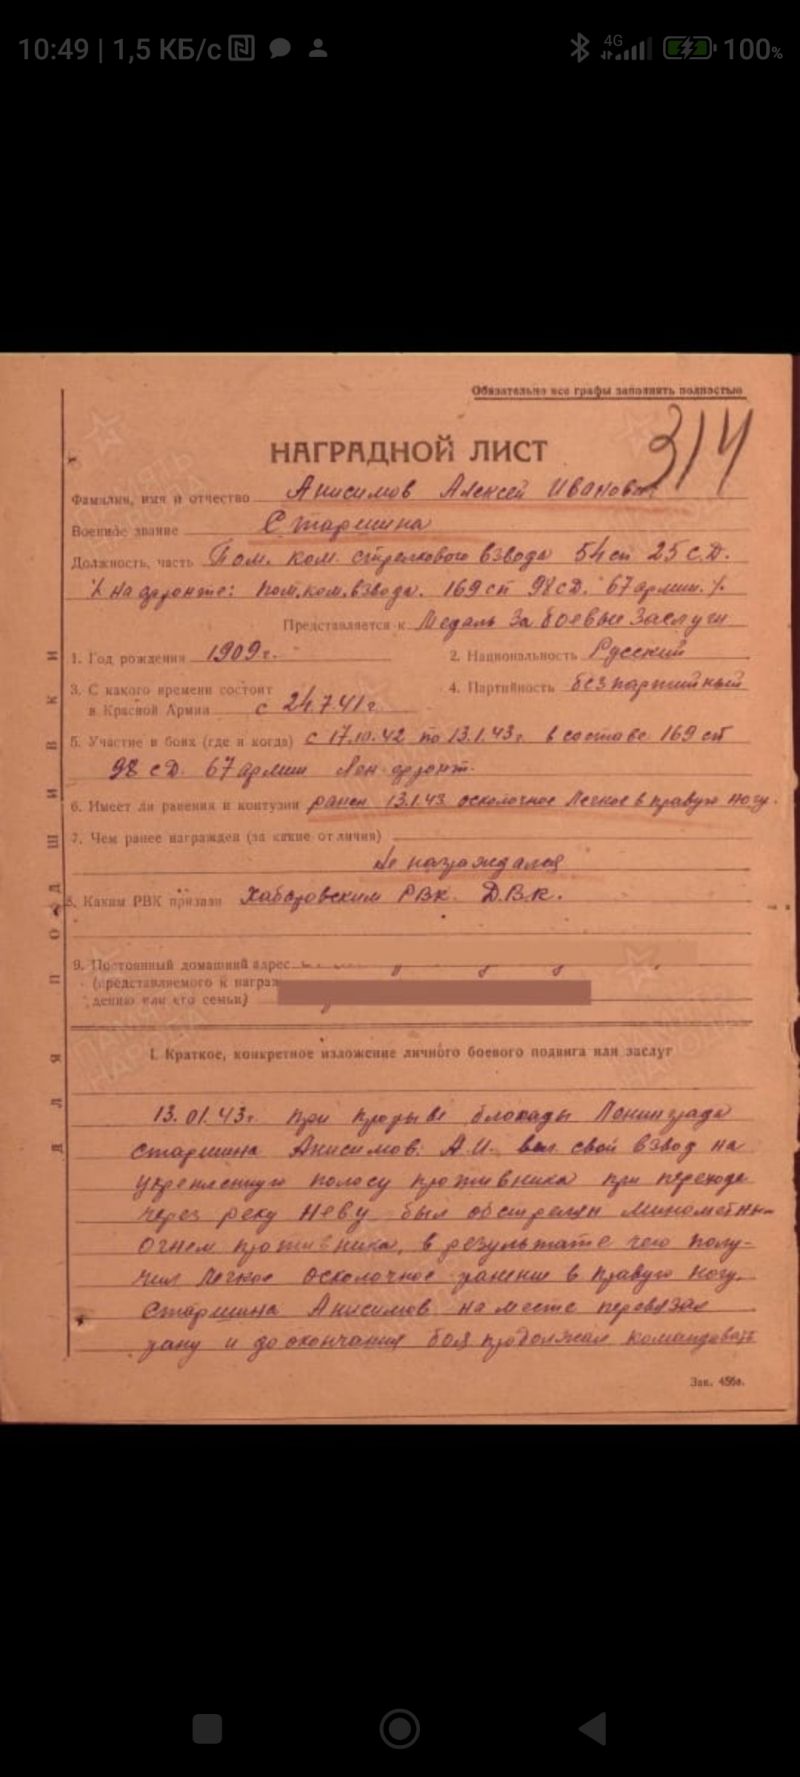 10:49 | 1,5 КБ/с
4G
100%
Обязательно все графы заполнять полностью
314
НАГРАДНОЙ ЛИСТ
Фамилия, имя и отчество Анисимов Алексей Иванович
Военное звание Старшина
Должность, часть Пом. ком. стрелкового взвода 54 сп 25 С.Д.
/. На фронте: Пом. ком. взвода. 169 сп 98 сД. 67 армии. /.
Представляется к Медаль За боевые Заслуги
1. Год рождения 1909 г.
2. Национальность Русский
3. С какого времени состоит
в Красной Армии с 24.7.41 г
4. Партийность безпартийный
5. Участие в боях (где и когда) с 17.10.42 по 13.1.43 г. в составе 169 сп
98 сД. 67 армии Лен. фронт.
6. Имеет ли ранения и контузии ранен 13.1.43 осколочное Легкое в правую ногу.
7. Чем ранее награжден (за какие отличия)
Не награждался
8. Каким РВК призван Хабаровским РВК. Д.В.К.
9. Постоянный домашний адрес
(представляемого к награж
дению или его семьи)
I. Краткое, конкретное изложение личного боевого подвига или заслуг
13.01.43 г. при прорыве блокады Ленинграда
Старшина Анисимов. А.И. вел свой взвод на
укрепленную полосу противника при переходе
через реку Неву был обстрелян минометным
огнем противника, в результате чего полу-
чил легкое осколочное ранение в правую ногу.
Старшина Анисимов на месте перевязал
рану и до окончания боя продолжал командовать
Зак. 456а.
ДЛЯ ПОДШИВКИ